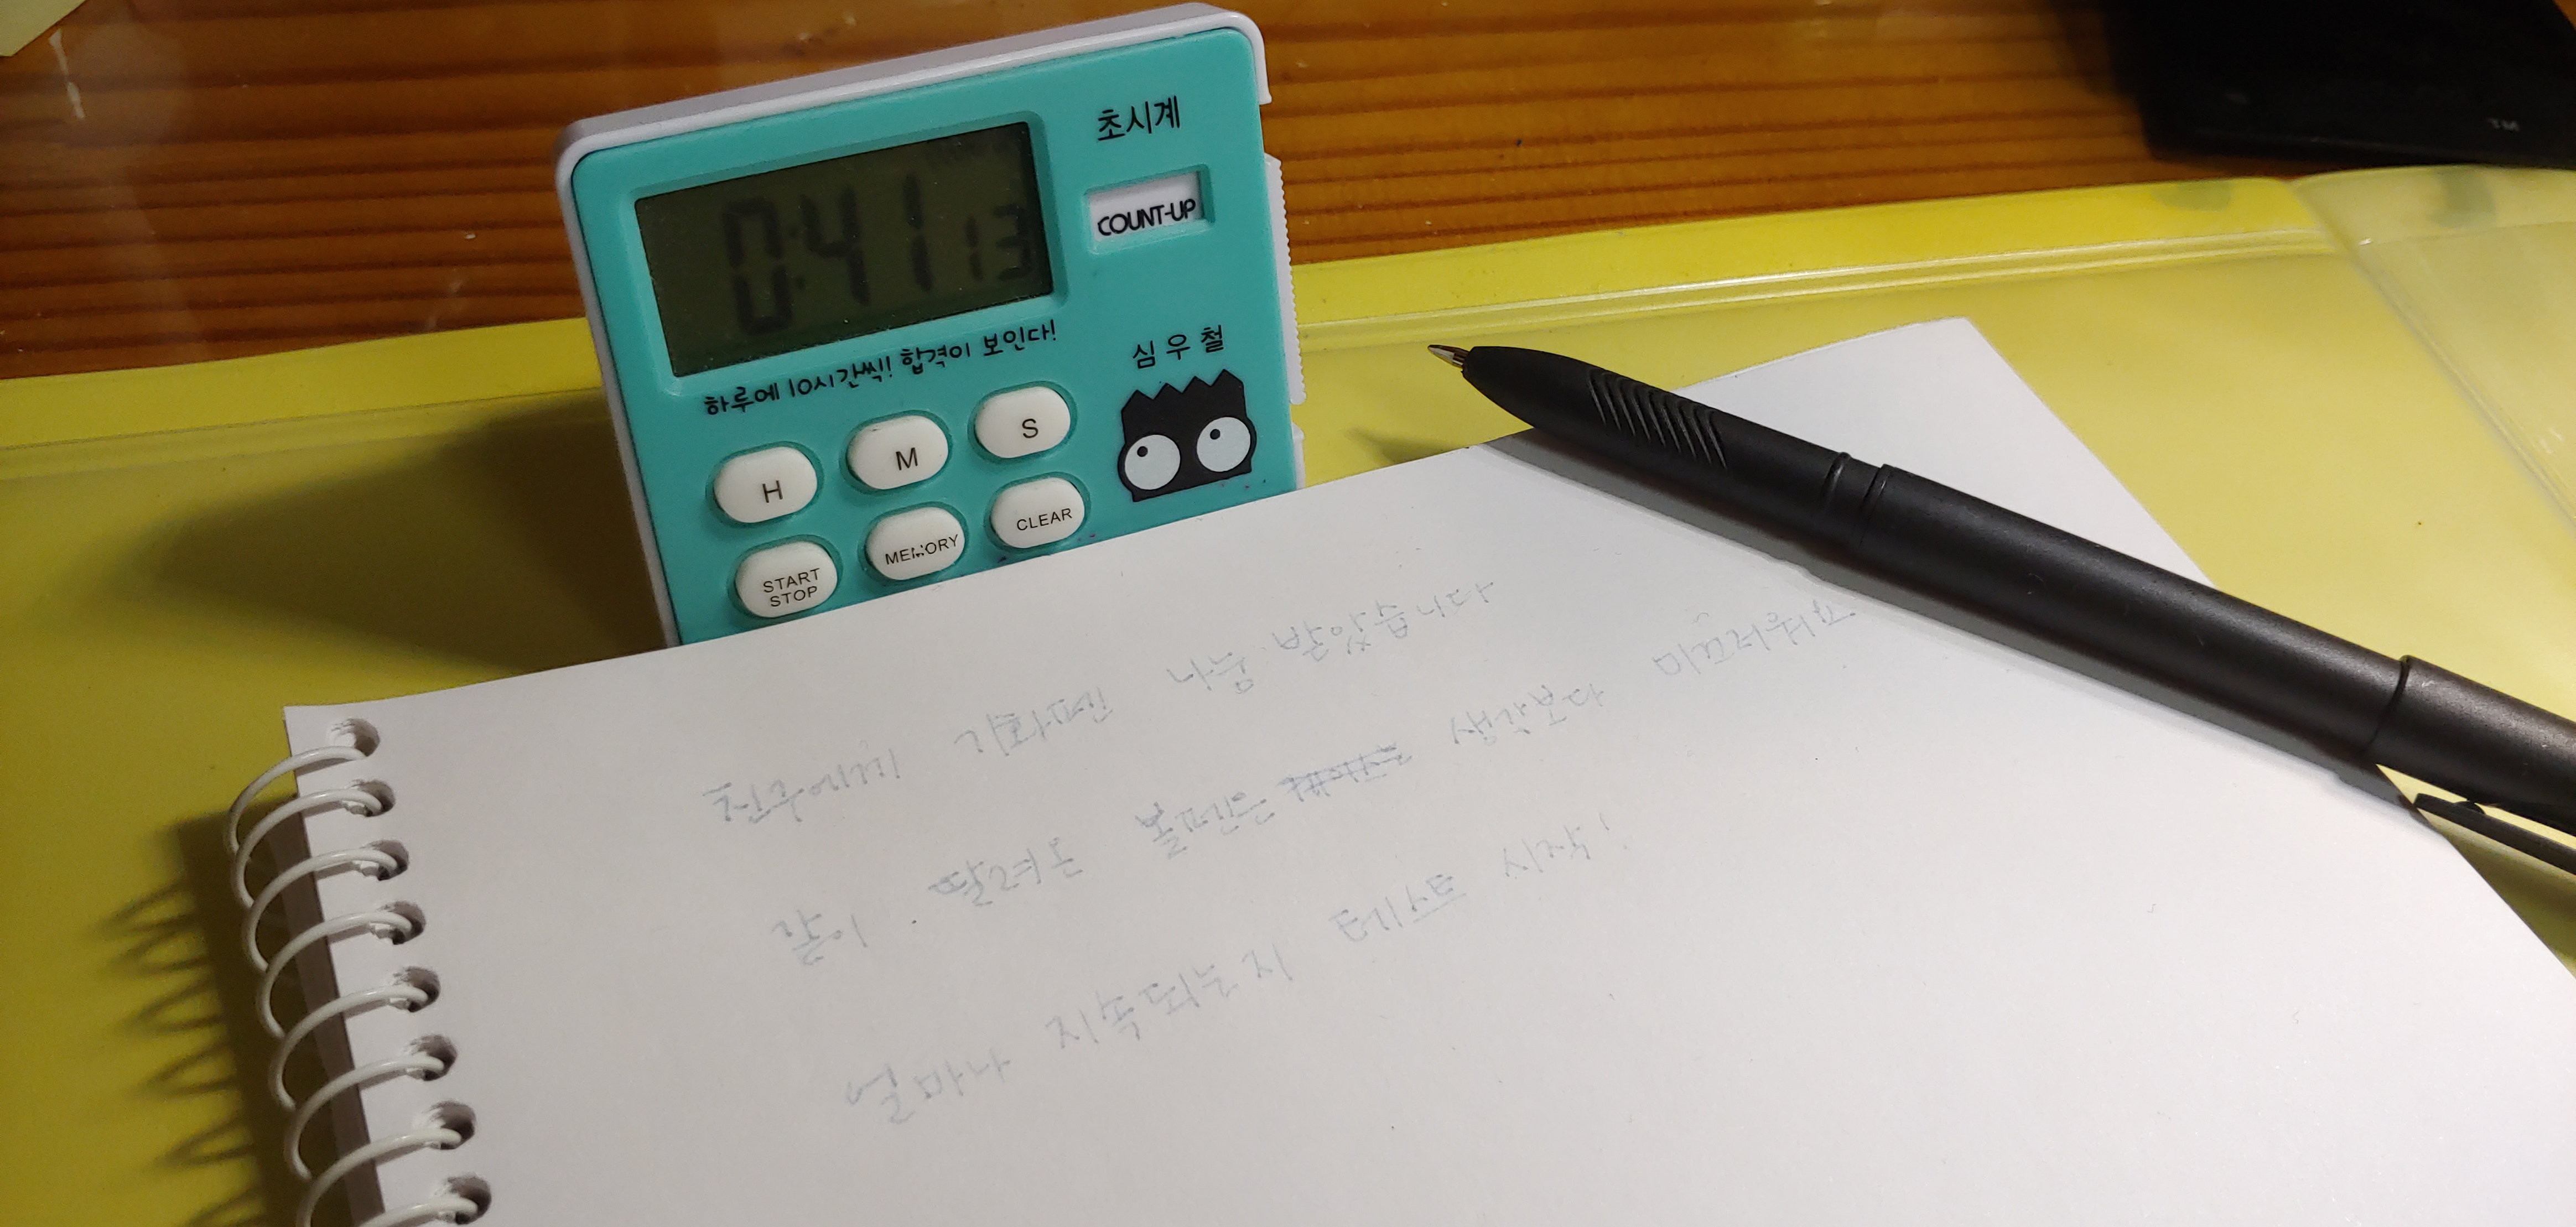 TM
초시계
0:41 13
COUNT-UP
하루에 10시간씩! 합격이 보인다!
심우철
H M S
START STOP MEMORY CLEAR
친구에게 기화펜 나눔 받았습니다
같이 딸려온 볼펜은 생각보다 미끄러워
얼마나 지속되는지 테스트 시작!